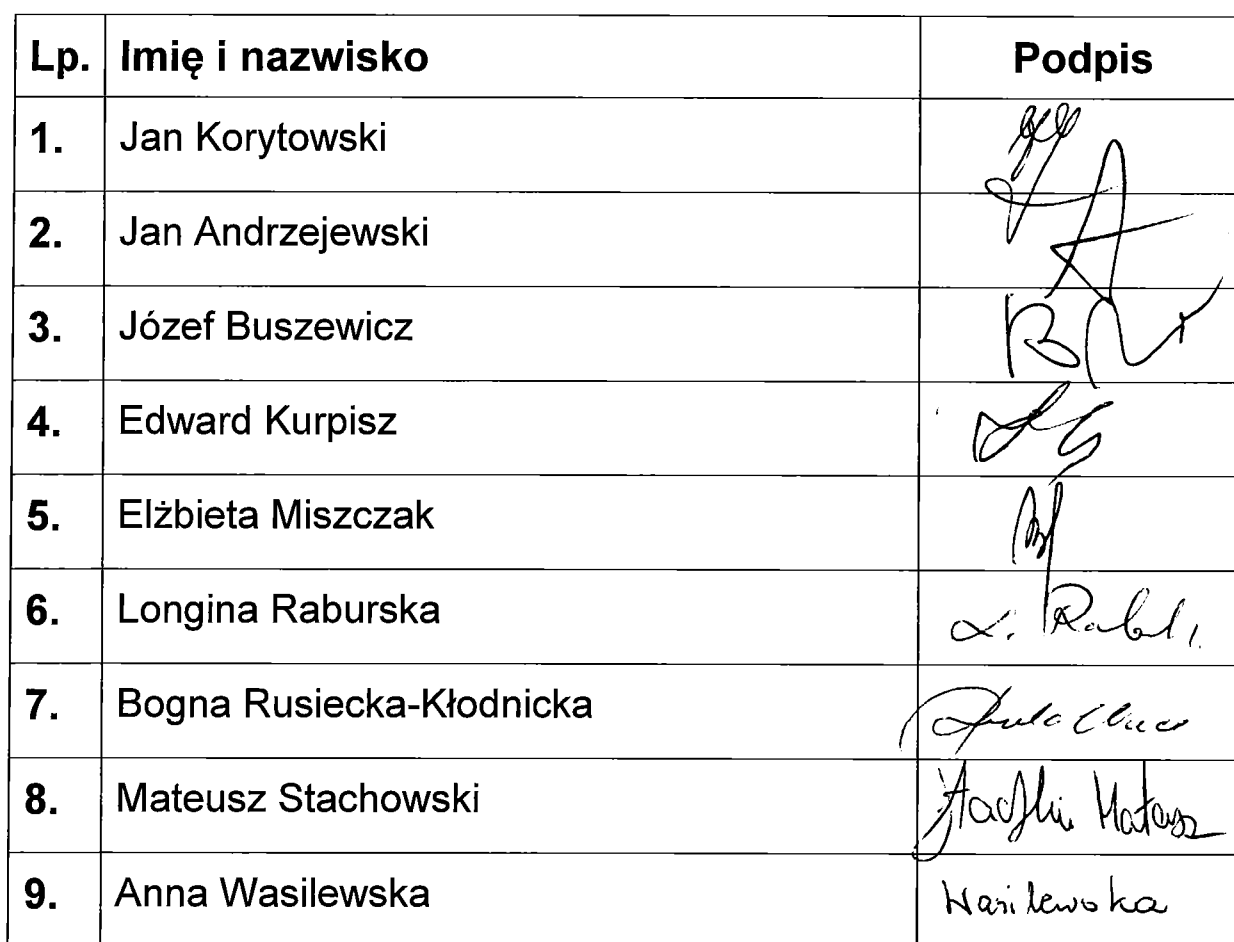 Lp. Imię i nazwisko Podpis
1. Jan Korytowski
2. Jan Andrzejewski
3. Józef Buszewicz
4. Edward Kurpisz
5. Elżbieta Miszczak
6. Longina Raburska
7. Bogna Rusiecka-Kłodnicka
8. Mateusz Stachowski Mateusz
9. Anna Wasilewska Wasilewska